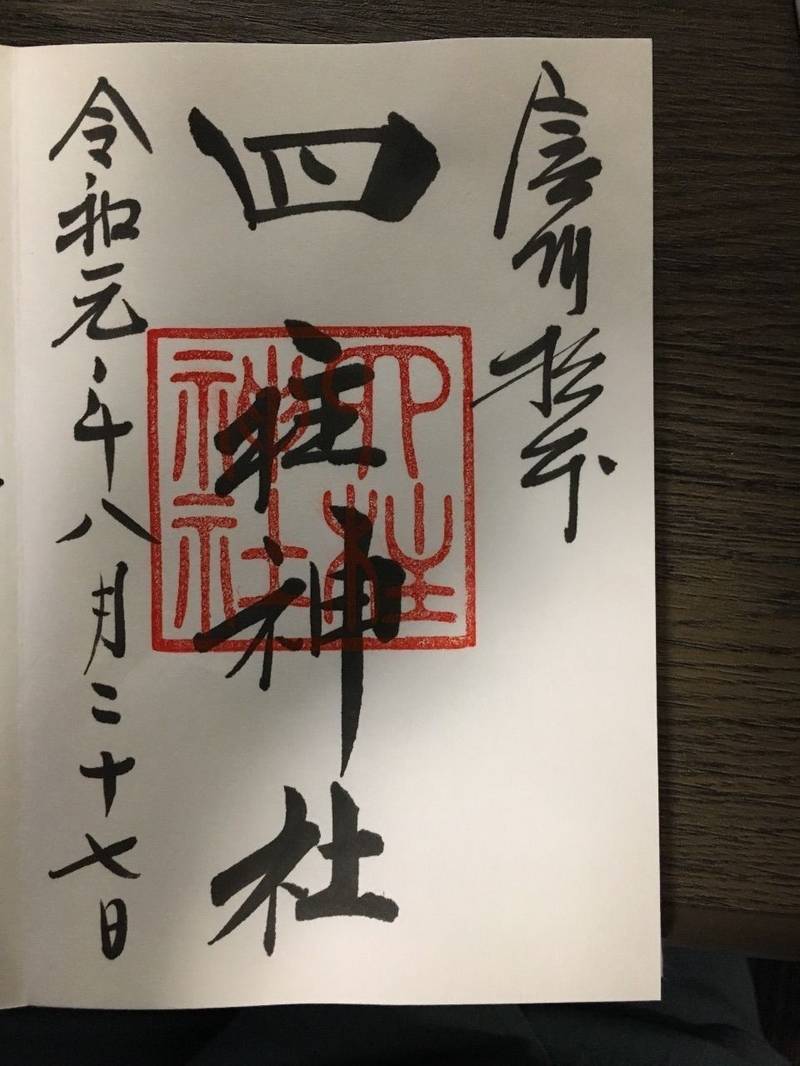 信州松本
四柱神社
四柱神社
令和元年八月二十七日